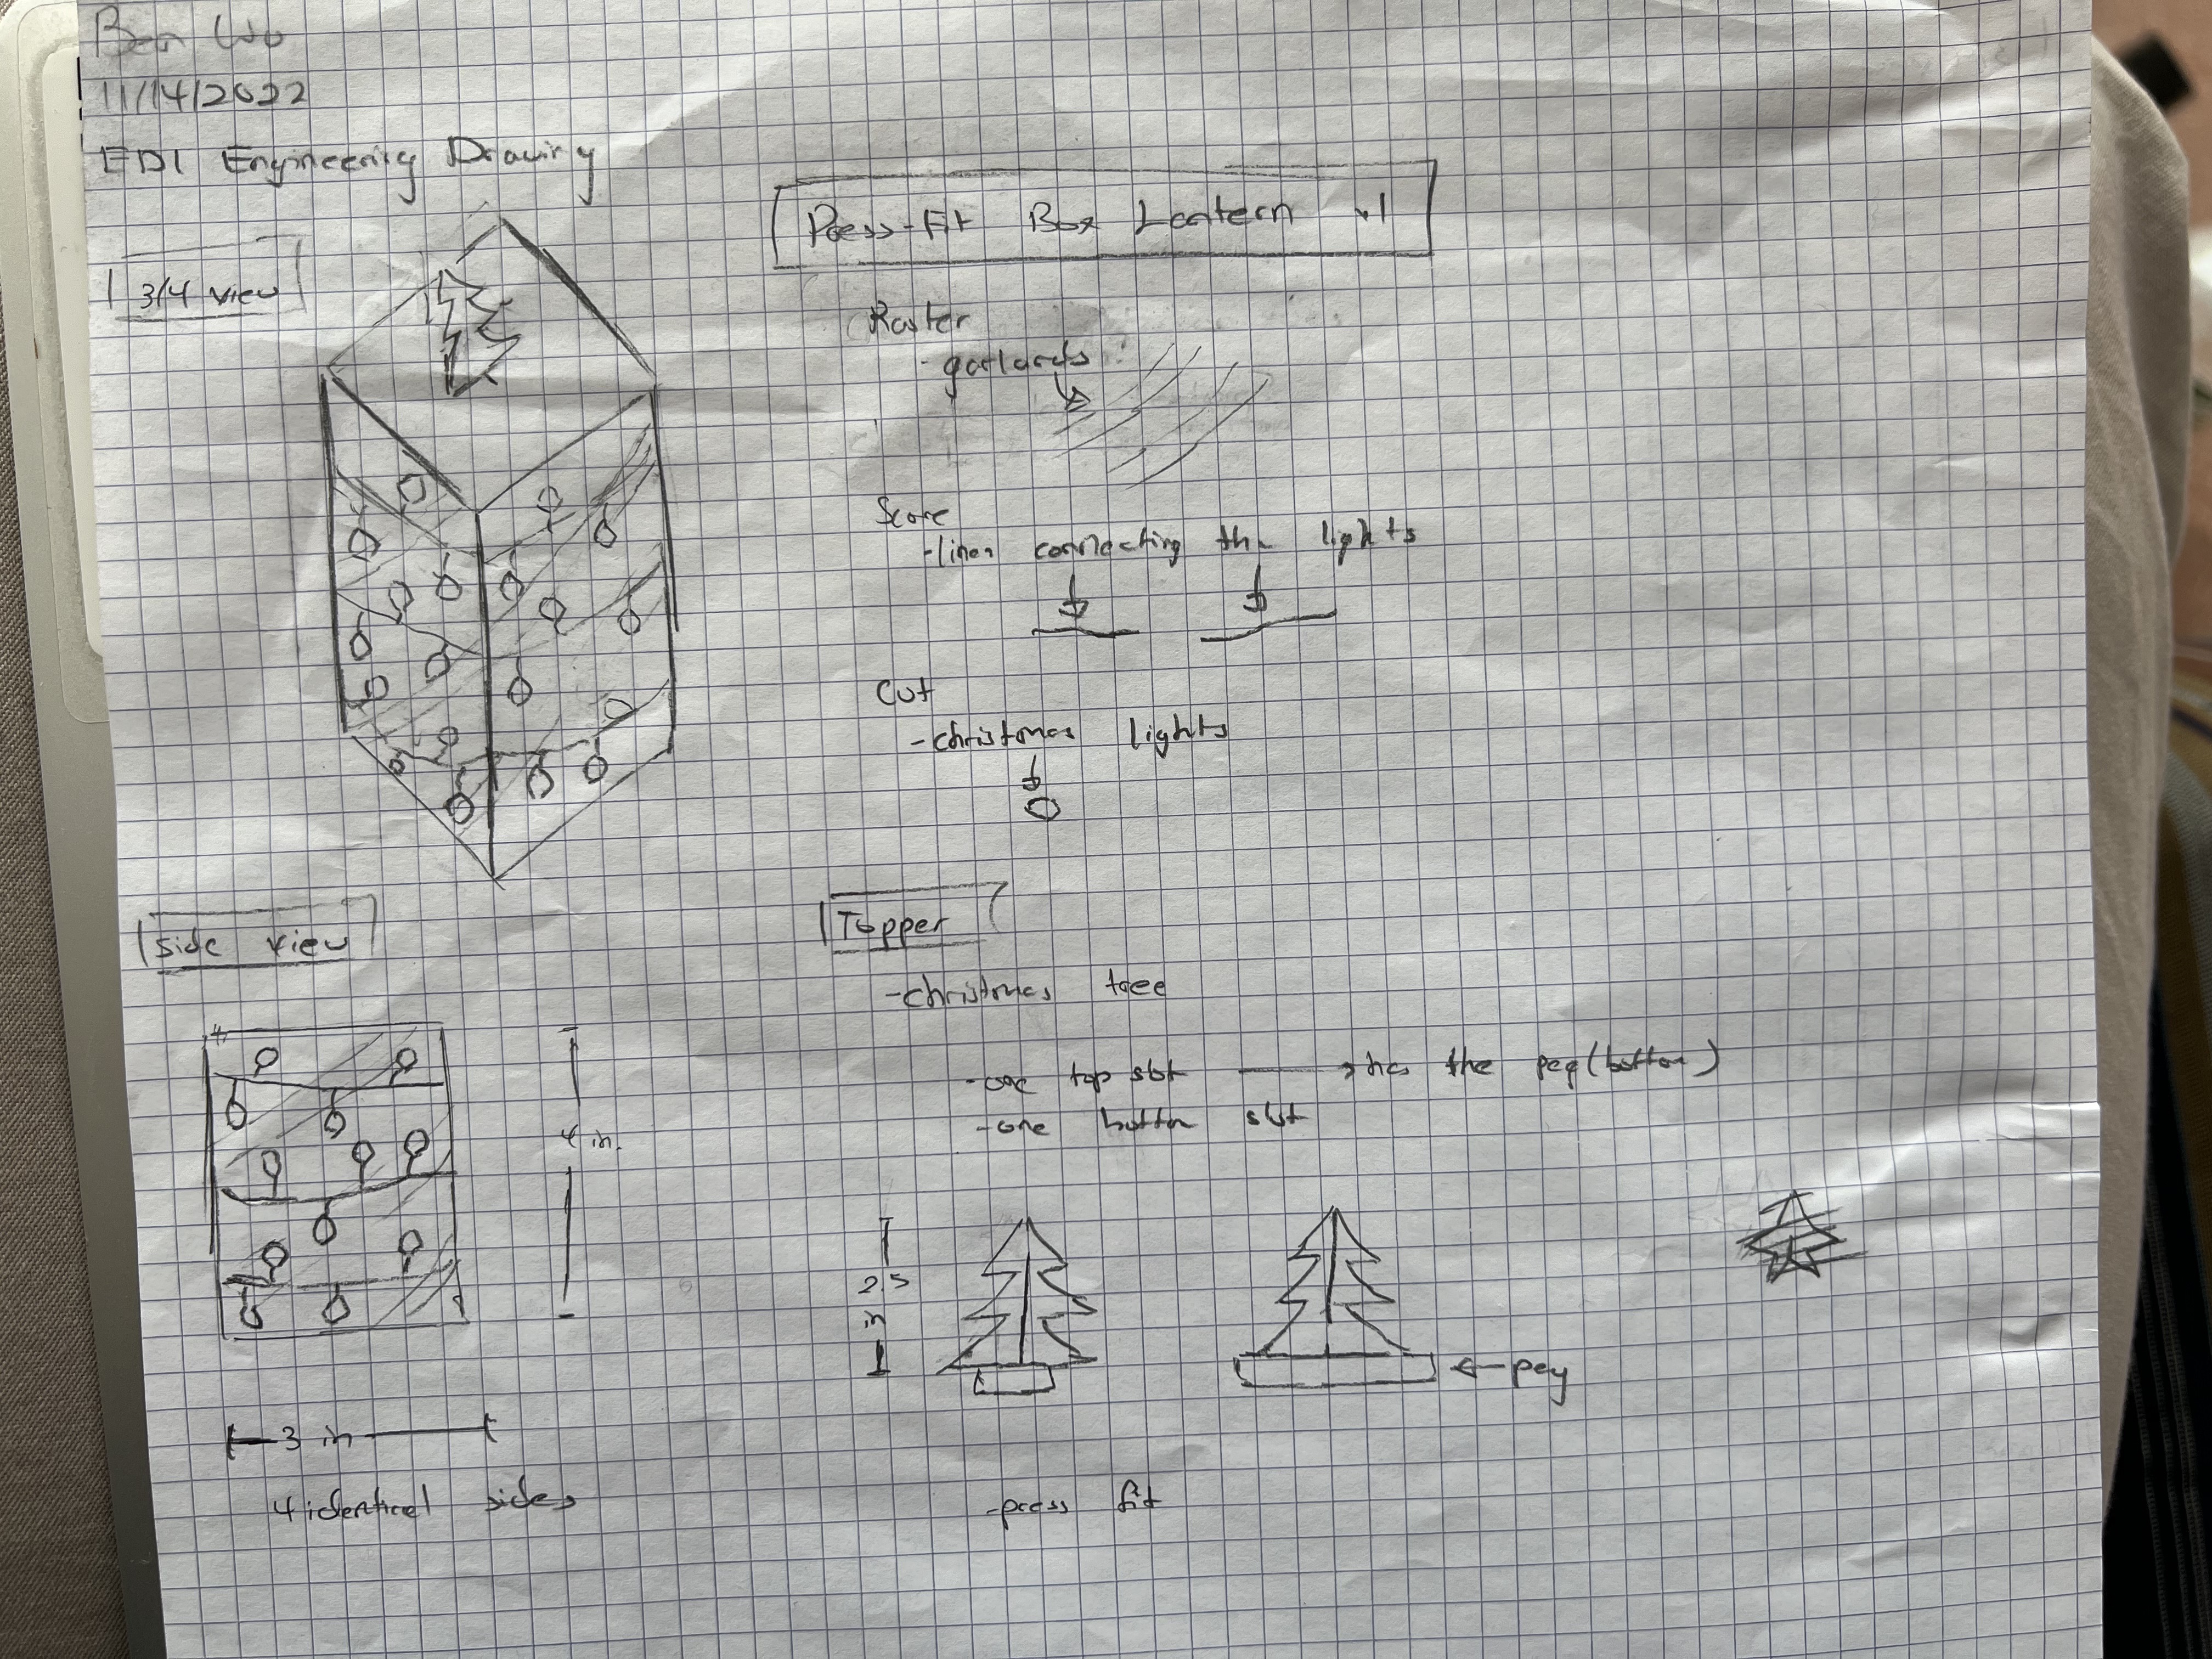 Ben Wu
11/14/2022
ED1 Engineering Drawing
Press-Fit Box Lantern v1
3/4 view
Raster
- garlands
Score
- lines connecting the lights
Cut
- christmas lights
side view
Topper
- christmas tree
- one top slot → has the peg (bottom)
- one bottom slot
4 in.
2.5
in
← peg
3 in
4 identical sides
- press fit